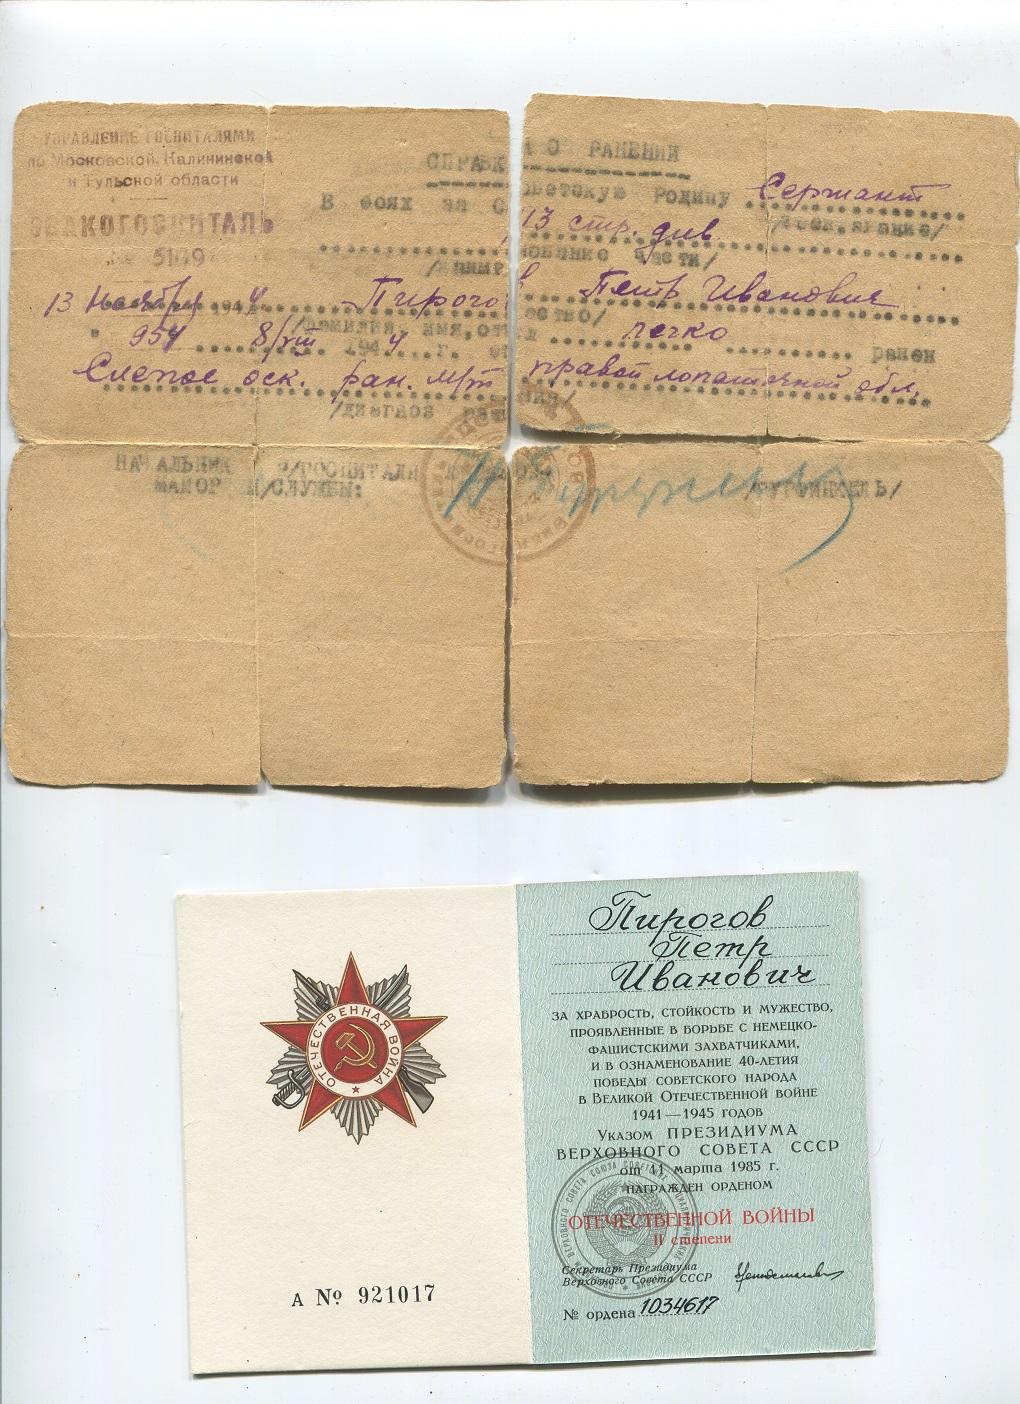 УПРАВЛЕНИЕ ГОСПИТАЛЯМИ
по Московской, Калининской
и Тульской области
ЭВАКОГОСПИТАЛЬ
№ 5109
13 Ноября 1944
СПРАВКА О РАНЕНИИ
В боях за Советскую Родину Сержант
/воен.звание/
13 стр. див
/наимр нование части/
Пирогов Петр Иванович
/фамилия, имя, отчество/
в 954 8/VIII 1944 г. легко ранен
Слепое оск. ран. м/т правой лопаточной обл.
/диагноз ранения/
НАЧАЛЬНИК ГОСПИТАЛЯ
МАЙОР М/СЛУЖБЫ:
ОТЕЧЕСТВЕННАЯ ВОЙНА
А № 921017
Пирогов
Петр
Иванович
ЗА ХРАБРОСТЬ, СТОЙКОСТЬ И МУЖЕСТВО,
ПРОЯВЛЕННЫЕ В БОРЬБЕ С НЕМЕЦКО-
ФАШИСТСКИМИ ЗАХВАТЧИКАМИ,
И В ОЗНАМЕНОВАНИЕ 40-ЛЕТИЯ
ПОБЕДЫ СОВЕТСКОГО НАРОДА
В ВЕЛИКОЙ ОТЕЧЕСТВЕННОЙ ВОЙНЕ
1941—1945 ГОДОВ
УКАЗОМ ПРЕЗИДИУМА
ВЕРХОВНОГО СОВЕТА СССР
от 11 марта 1985 г.
НАГРАЖДЕН ОРДЕНОМ
ОТЕЧЕСТВЕННОЙ ВОЙНЫ
II степени
Секретарь Президиума
Верховного Совета СССР
№ ордена 1034617